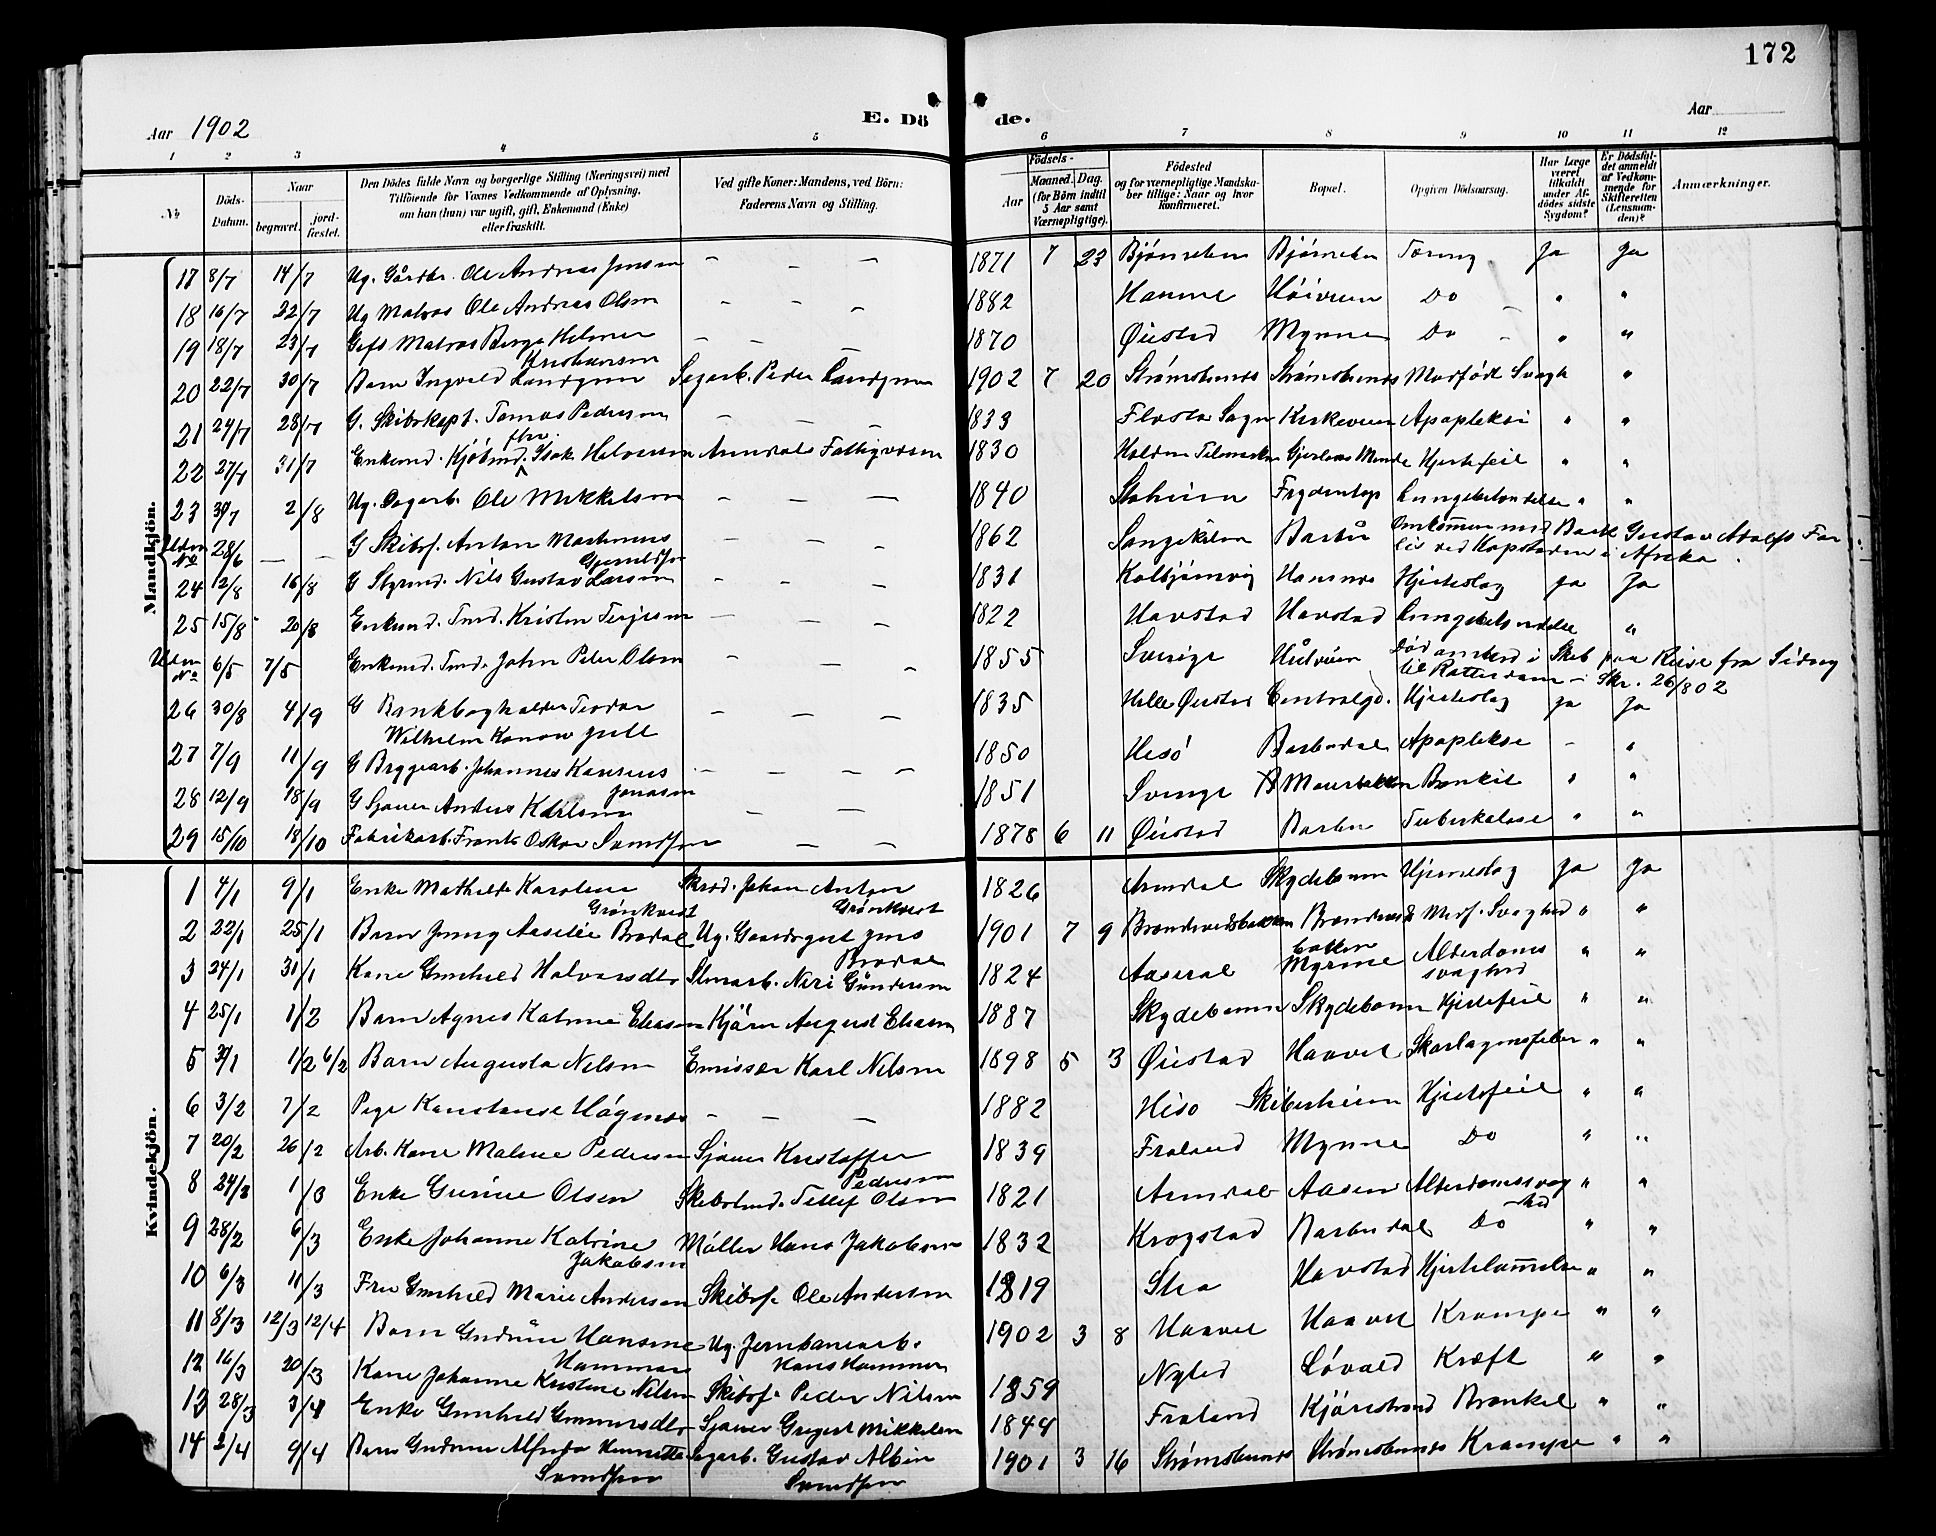 172
Aar 1902
E. Dö de.
Aar
1 2 3 4 5 6 7 8 9 10 11 12
No
Döds-Datum.
Naar
begravet.
jord-fæstet.
Den Dödes fulde Navn og borgerlige Stilling (Næringsvei) med
Tilföiende for Voxnes Vedkommende af Oplysning,
om han (hun) var ugift, gift, Enkemand (Enke)
eller fraskilt.
Ved gifte Koner: Mandens, ved Börn:
Faderens Navn og Stilling.
Födsels-
Aar
Maaned. Dag.
(for Børn indtil
5 Aar samt
Værnepligtige).
Födested
og for værnepligtige Mandska-
ber tillige: Naar og hvor
konfirmeret.
Bopæl.
Opgiven Dödsaarsag.
Har Læge
været
tilkaldt
under Af-
dödes sidste
Sygdom?
Er Dödsfal-
det anmeldt
af Vedkom-
mende for
Skifteretten
(Lensman-
den)?
Anmærkninger.
Mandkjön.
17 8/7 14/7 Ug. Gårdbr. Ole Andreas Jensen – – – 1871 7 23 Bjønneben Bjønneben Tæring Ja Ja
18 16/7 22/7 Ug Matros Ole Andreas Olsen – – – 1882 Do – " "
19 18/7 23/7 Gift Matros Berge Helmer – – – 1870 Øiestad Myrene Do – " "
Kristiansen
20 22/7 30/7 Barn Ingvald Landgren Sagarb. Peder Landgren 1902 7 20 Strømsbunes Strømsbunes Medfødt Svagh "
21 24/7 28/7 G. Skibskapt. Tomas Pedersen – – – 1833 Flosta Sogn Kirkeveien Apopleksi " "
22 27/7 31/7 Enkemd. fhv. Kjøbmd. Isak Halvorsen Arendals Fattigvæsen 1830 Hjertefeil " "
23 2/8 Ug. Dagarb. Ole Mikkelsen – – – 1840 Frydentop Lungebetændelse " "
Uden No 28/6 – – G Skibsf. Anton Martinius – – – 1862 Songekilen Barbu Omkommen med Bark Gustav Adolfs For-
lis ved Kapstaden i Afrika.
24 12/8 16/8 G Styrmd. Nils Gustav Larsen – – – 1831 Kolbjørnsvig Hjerteslag Ja Ja
25 15/8 20/8 Enkemd. Tmd. Kristen Terjesen – – – 1822 Havstad Havstad Lungebetændelse "
Uden No 6/5 7/5 Enkemd. Tmd. John Peter Olsen – – – 1855 Sverige Død ombord i Skib paa Reise fra
til Rotterdam – Skr. 26/8 02
26 30/8 4/9 G Bankbogholder Teodor – – – 1835 Helle Øiestad Centralgd. Hjerteslag Ja Ja
Wilhelm Konow Juell
27 7/9 11/9 G Bryggearb. Johannes – – – – 1850 Hisö Barbudal Apopleksi – "
Jonasen
28 12/9 18/9 G Sjauer Anders Karlsen – – 1851 Sverige Bronkit " "
29 15/10 18/10 Fabrikarb. Frants Oskar Svendsen – – 1878 6 11 Øiestad Barbu Tuberkulose " "
Kvindekjön.
1 4/1 9/1 Enke Mathilde Karoline Skred. Johan Anton 1826 Arendal Skydebanen Hjerneslag Ja Ja
Grønkvist Grønkvist
2 22/1 25/1 Barn Jenny Aaselie Brodal Ug. Gaardsgut Jens 1901 7 9 Brændevidsbakken Brændevids Medf. Svaghed " "
Brodal bakken
3 24/1 31/1 Kone Gunhild Halvorsdtr Stenarb. Neri Gundersen 1824 Aaseral Myrene Alderdoms " "
svaghed
4 25/1 1/2 Barn Agnes Katrine Eliasen Kjørm August Eliasen 1887 Skydebanen Skydebanen Hjertefeil " "
5 1/2 6/2 Barn Augusta Nilsen Emissær Karl Nilsen 1898 5 3 Øiestad Haavet Skarlagensfeber " "
6 3/2 7/2 Pige Konstanse – – – 1882 Hisö Skibersheim Hjertefeil " "
7 20/2 26/2 Arb. Kone Maline Pedersen Sjauer Kristoffer 1839 Froland Myrene Do " "
Pedersen
8 24/2 1/3 Enke Gurine Olsen Skibstmd. Tellef Olsen 1821 Arendal Aasen Alderdomssvag " "
hed
9 28/2 6/3 Enke Johanne Katrine Møller Hans Jakobsen 1832 Krogstad Barbudal Do " "
Jakobsen
10 6/3 11/3 Fru Gunhild Marie Andersen Skibsf. Ole Andersen 1819 Havstad Hjertelammelse " "
11 8/3 12/3 12/4 Barn Gudrun Hansine Ug. Jernbanearb. 1902 3 8 Haavet Haavet Krampe " "
Hammer Hans Hammer
12 16/3 20/3 Kone Johanne Kristine Nilsen Skibsf. Peder Nilsen 1859 Løvold Kræft " "
13 28/3 3/4 Enke Gunhild Gunnersdtr Sjauer Gregert Mikkelsen 1844 Froland Kjørestrand Bronkit " "
14 2/4 9/4 Barn Gudrun Alfrida Henriette Sagarb. Gustav Albin 1901 3 16 Strømsbunes Strømsbunes Krampe " "
Svendsen Svendsen